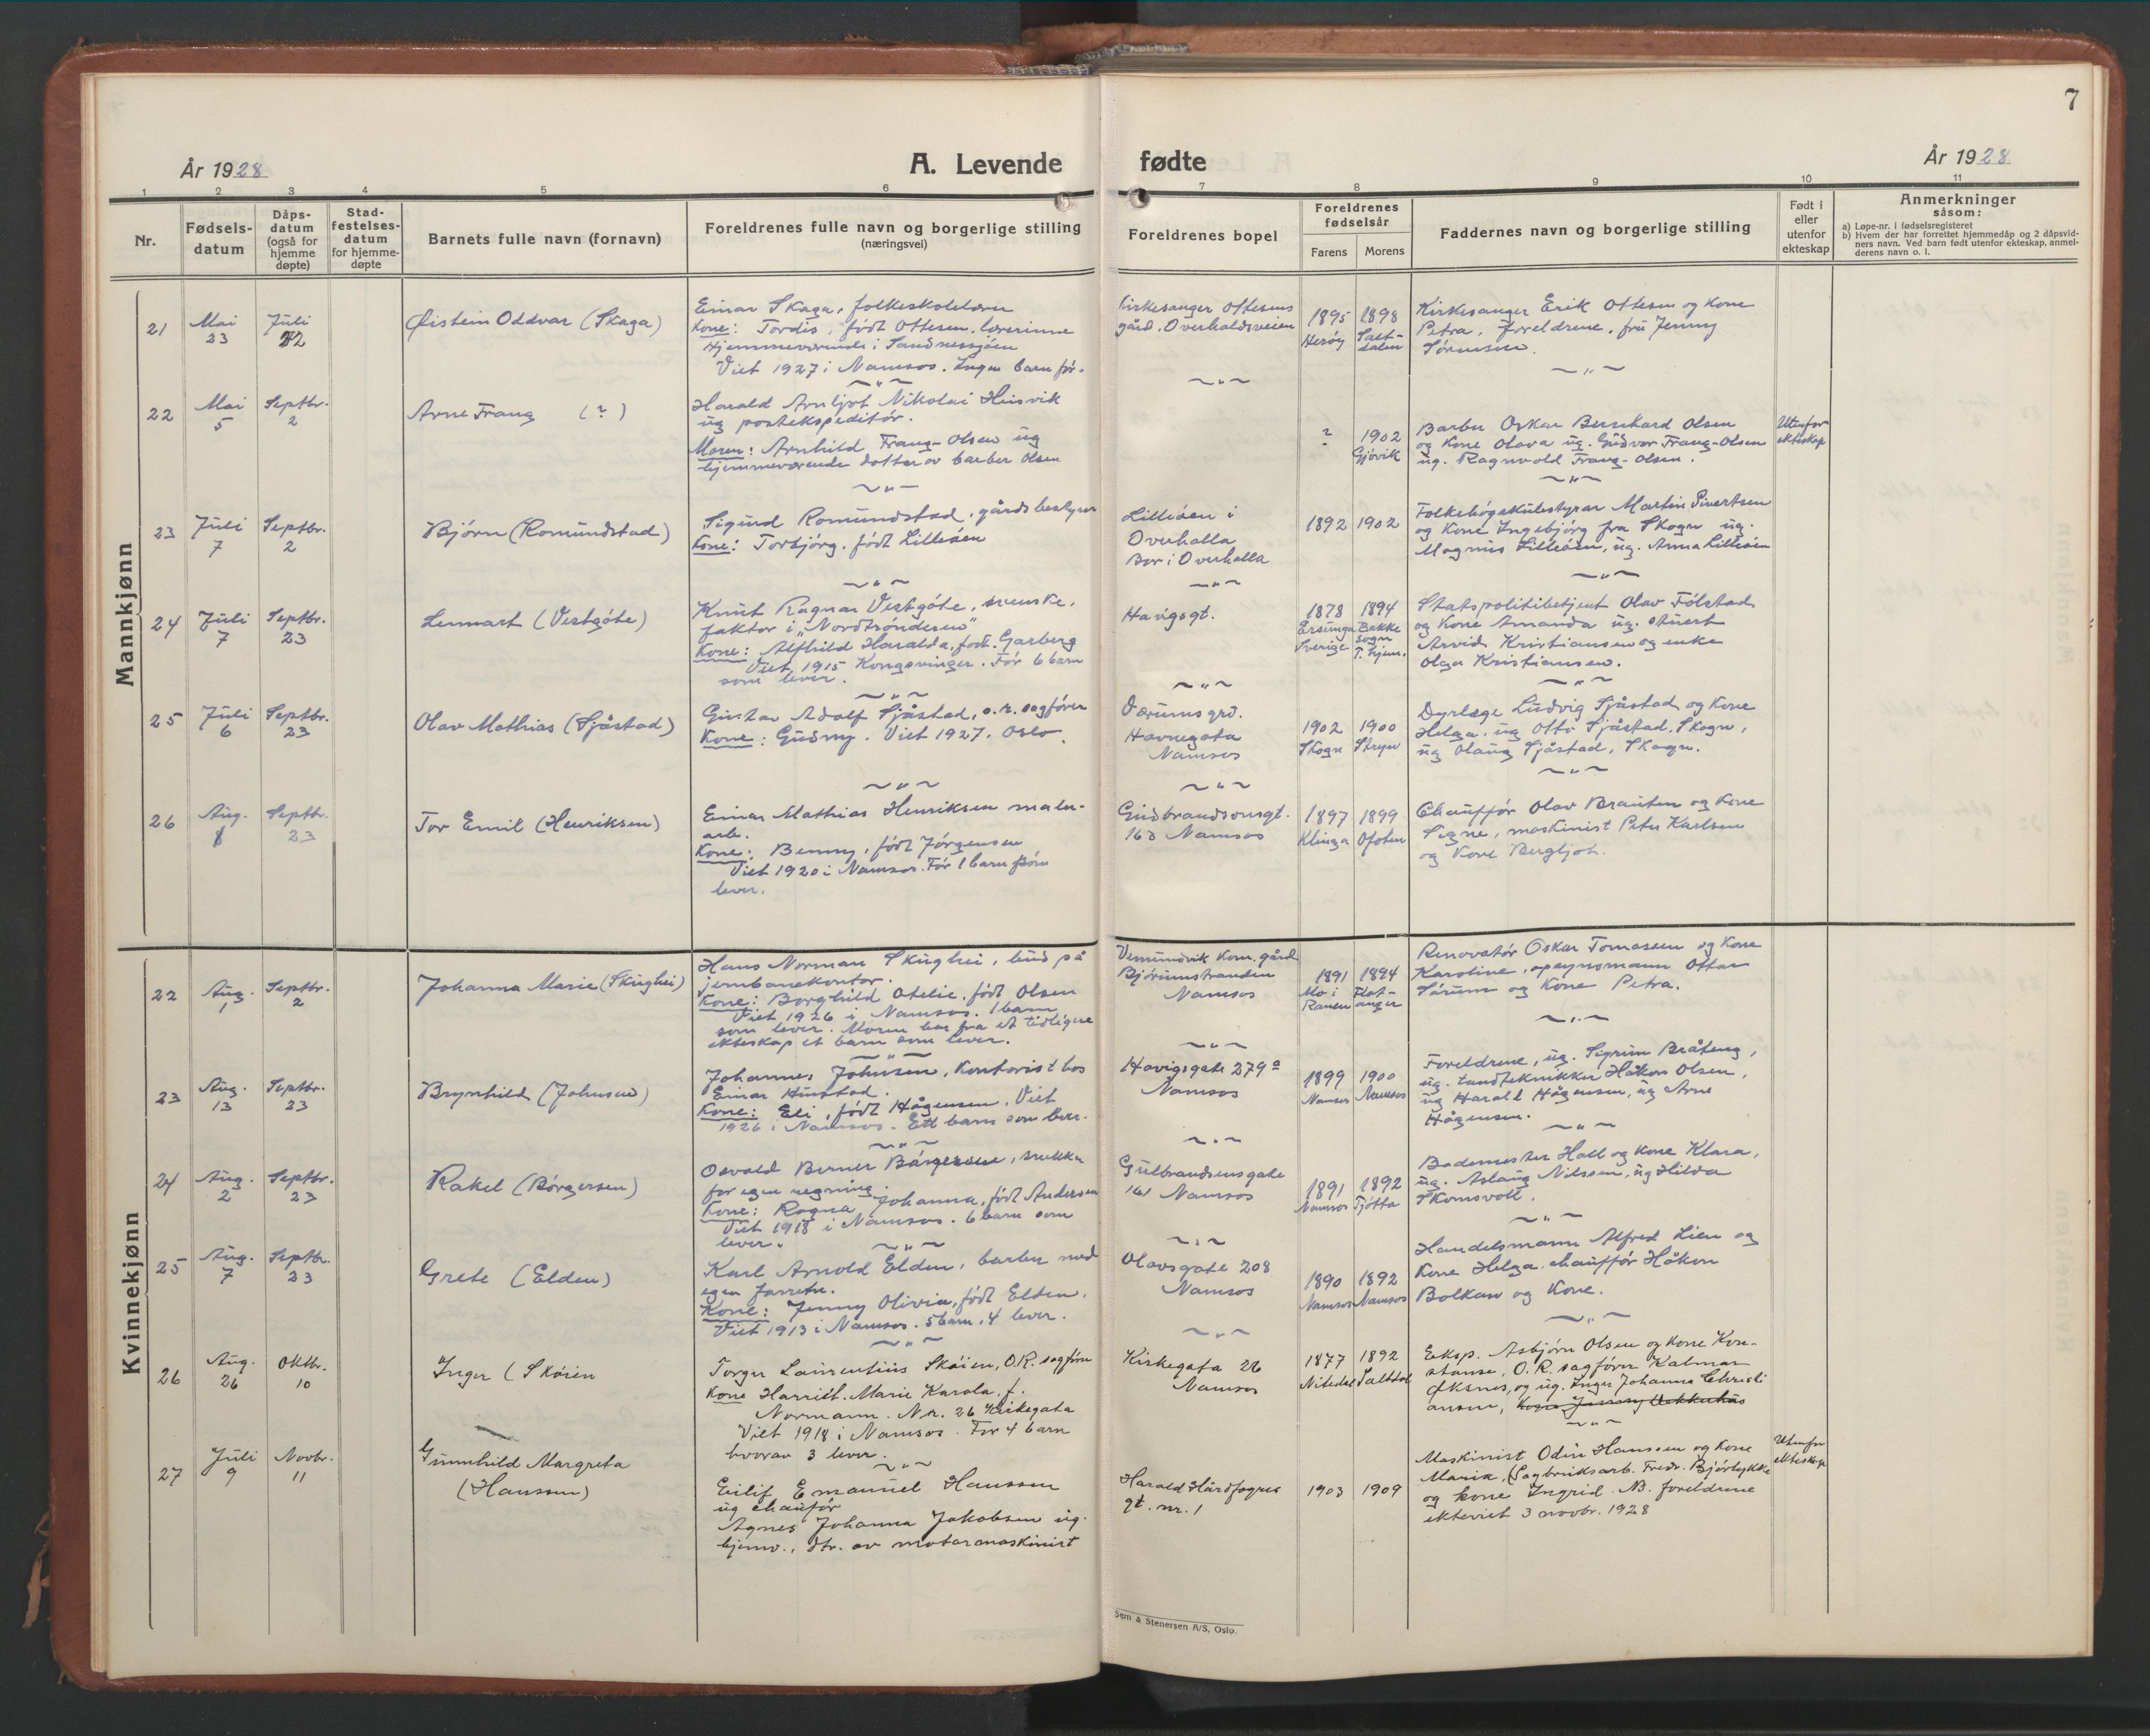 7
År 1928
A. Levende
fødte
År 1928
1 2 3 4 5 6 7 8 9 10 11
Nr.
Fødsels-
datum
Dåps-
datum
(også for
hjemme
døpte)
Stad-
festelses-
datum
for hjemme-
døpte
Barnets fulle navn (fornavn)
Foreldrenes fulle navn og borgerlige stilling
(næringsvei)
Foreldrenes bopel
Foreldrenes
fødselsår
Farens Morens
Faddernes navn og borgerlige stilling
Født i
eller
utenfor
ekteskap
Anmerkninger
såsom:
a) Løpe-nr. i fødselsregisteret
b) Hvem der har forrettet hjemmedåp og 2 dåpsvid-
ners navn. Ved barn født utenfor ekteskap, anmel-
derens navn o. l.
Mannkjønn
21
Mai
23
Juli
22
Øistein Oddvar (Skaga)
Einar Skaga, folkeskolelærer
Kone: Tordis, født Ottesen, lærerinne
Hjemmeværende i Sandnessjøen
Viet 1927 i Namsos. Ingen barn før.
Kirkesanger Ottesens
gård, Overhaldsveien
1895
Herøy
1898
Salt-
dalen
Kirkesanger Erik Ottesen og kone
Petra, foreldrene, frü Jenny
Sørensen.
22
Mai
5
Septbr.
2
Arne Fraug (?)
Harald Arnljot Nikolai Hiisvik
ug postekspeditør.
Moren: Arnhild Fraug-Olsen ug
hjemmeværende dotter av barber Olsen
?
1902
Gjøvik
Barber Oskar Bernhard Olsen
og kone Olava ug. Gudvor Fraug-Olsen
ug. Ragnvald Fraug-Olsen.
Utenfor
ekteskap
23
Juli
7
Septbr.
2
Bjørn (Romundstad)
Sigurd Romundstad, gårdsbestyrer
Kone: Torbjørg, født Lilleøen
Lilleøen i
Overhalla
Bor i Overhalla
1892 1902
Folkehøgskulestyrar Martin Sivertsen
og kone Ingebjørg fra Skogn ug.
Magnus Lilleøen, ug. Anna Lilleøen
24
Juli
7
Septbr.
23
Lennart (Vestgøte)
Knut Ragnar Vestgøte, svenske,
faktor i „Nordtrønderen"
Kone: Alfhild Haralda, født Garberg
Viet 1915 Kongsvinger. Før 6 barn
som lever.
Havigsgt.
1878
Sverige
1894
Bakke
sogn
T. hjem.
Statspolitibetjent Olav Følstad
og kone Amanda ug. stuert
Arvid Kristiansen og enke
Olga Kristiansen.
25
Juli
6
Septbr.
23
Olav Mathias (Sjåstad)
Gustav Adolf Sjåstad, o.r. sagfører
Kone: Gudny. Viet 1927. Oslo.
Værumsgrd.
Havnegata
Namsos
1902
Skogn
1900
Stryn
Dyrlæge Ludvig Sjåstad og kone
Helga, ug Otto Sjåstad, Skogn,
ug Olaug Sjåstad, Skogn.
26
Aug.
8
Septbr.
23
Tor Emil (Henriksen)
Einar Mathias Henriksen maler-
arb.
Kone: Benny, født Jørgensen
Viet 1920 i Namsos. Før 1 barn som
lever.
Gudbrandsonsgt.
163 Namsos
1897
Klinga
1899
Ofoten
Chauffør Olav Brauten og kone
Signe, maskinist Peter Karlsen
og kone Bergljot.
Kvinnekjønn
22
Aug.
1
Septbr.
2
Johanna Marie (Skughei)
Hans Norman Skughei, bud på
jernbanekontor.
Kone: Borghild Otelie, født Olsen
Viet 1926 i Namsos. 1 barn
som lever. Moren har fra et tidligere
ekteskap et barn som lever.
Vemundvik kom. gård
Bjørumstranden
Namsos
1891
Mo i
Ranen
1894
Flat-
anger
Renovatør Oskar Tomassen og kone
Karoline, opsynsmann Ottar
Sørum og kone Petra.
23
Aug.
13
Septbr.
23
Brynhild (Johnsen)
Johannes Johnsen, kontorist hos
Einar Hustad.
Kone: Eli, født Hågensen, Viet
1926 i Namsos. Ett barn som lever.
Havigsgate 279a
Namsos
1899
Namsos
1900
Namsos
Foreldrene, ug. Sigrun Bråteng,
ug. tandtekniker Håkon Olsen,
ug Harald Hågensen, ug Arne
Hågensen.
24
Aug.
2
Septbr.
23
Rakel (Børgersen)
Osvald Berner Børgersen, snekker
for egen regning.
Kone: Ragna Johanna, født Andersen
Viet 1918 i Namsos. 6 barn som
lever.
Gulbrandsensgate
161 Namsos
1891
Namsos
1892
Tjøtta
Bademester Hall og kone Klara,
ug. Aslaug Nilssen, ug Hilda
Skomsvoll.
25
Aug.
7
Septbr.
23
Grete (Elden)
Karl Arnold Elden, barber med
egen forretn.
Kone: Jenny Olivia, født Elden.
Viet 1913 i Namsos. 5 barn, 4 lever.
Olavsgate 208
Namsos
1890
Namsos
1892
Namsos
Handelsmann Alfred Lien og
kone Helga, chauffør Håkon
Bolkan og kone.
26
Aug.
26
Oktbr.
10
Inger (Skøien
Torger Laurentius Skøien, O.R. sagfører
Kone Harriet Marie Karola, f.
Normann. Nr. 26 Kirkegata
Viet 1918 i Namsos. Før 4 barn
hvorav 3 lever.
Kirkegata 26
Namsos
1877
Nitedal
1892
Saltdal
Eksp. Asbjørn Olsen og kone Kon-
stanse, O.R. sagfører Kalmar
Øksnes, og ug. Inger Johanna Christi
ansen,
27
Juli
9
Novbr.
11
Gunnhild Margreta
(Hanssen)
Eilif Emanuel Hanssen
ug chaufør
Agnes Johanna Jakobsen ug.
hjemv., dtr. av motormaskinist
Harald Hårdfagres
gt. nr. 1
1903 1909
Maskinist Odin Hanssen og kone
Marie, (Sagbruksarb. Fredr. Bjørlykke
og kone Ingrid. N.B. foreldrene
ekteviet 3 novbr. 1928
Utenfor
ekteskap
Sem & Stenersen A/S, Oslo.